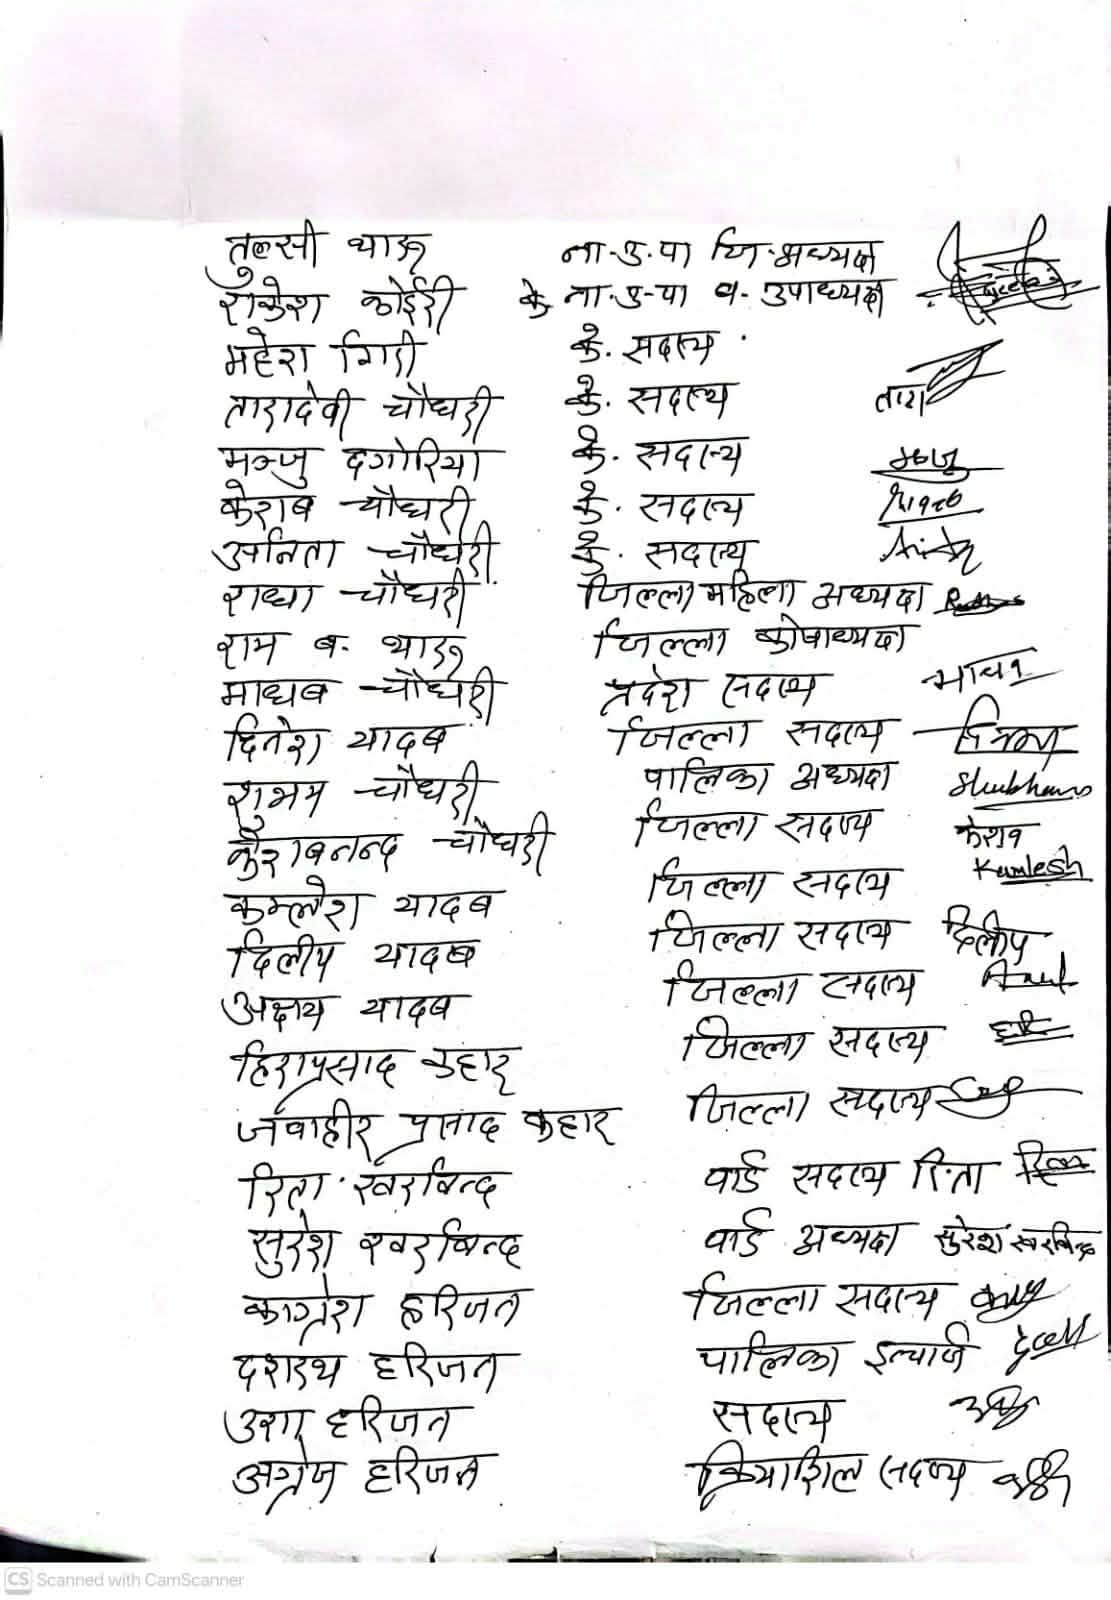 तुल्सी थारू ना.उ.पा जि.अध्यक्ष
राकेश कोईरी के ना-उ-पा व. उपाध्यक्ष
महेश गिरी के. सदस्य
तारादेवी चौधरी के. सदस्य तारा
मञ्जु दगौरिया के. सदस्य मञ्जु
केशब चौधरी के. सदस्य
अनिता चौधरी के. सदस्य
राधा चौधरी जिल्ला महिला अध्यक्ष
राम ब. थारू जिल्ला कोषाध्यक्ष
माधब चौधरी प्रदेश सदस्य माधव
दिनेश यादब जिल्ला सदस्य
शुभम चौधरी पालिका अध्यक्ष Shubham
केशबनन्द चौधरी जिल्ला सदस्य केशव
कम्लेश यादब जिल्ला सदस्य Kamlesh
दिलीप यादब जिल्ला सदस्य दिलीप
अक्षय यादब जिल्ला सदस्य
हिराप्रसाद कहार जिल्ला सदस्य
जवाहीर प्रसाद कहार जिल्ला सदस्य
रिता खरबिन्द वार्ड सदस्य रिता
सुरेश खरबिन्द वार्ड अध्यक्ष सुरेश खरबिन्द
काग्रेश हरिजन जिल्ला सदस्य
दशरथ हरिजन पालिका इन्चार्ज
उशा हरिजन सदस्य
अग्रेज हरिजन क्रियाशिल सदस्य
CS Scanned with CamScanner